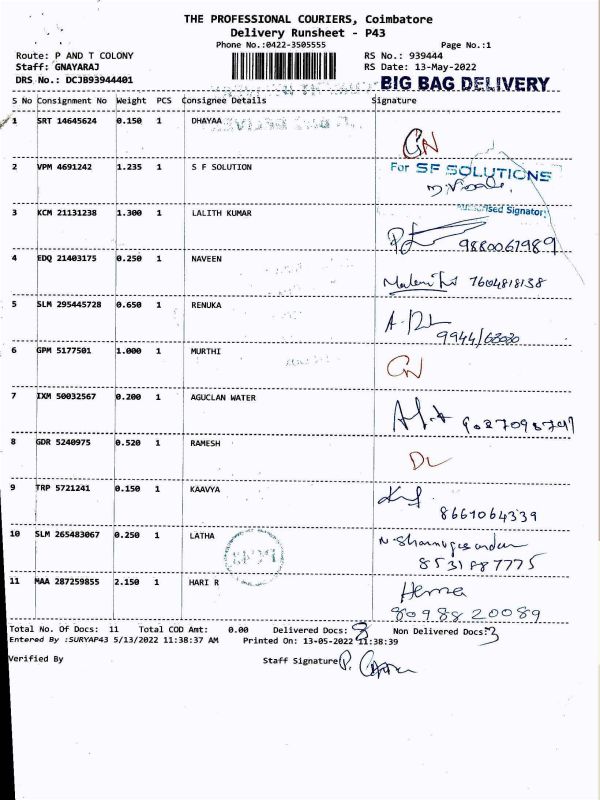 THE PROFESSIONAL COURIERS, Coimbatore
Delivery Runsheet - P43
Phone No.:0422-3505555 Page No.:1
Route: P AND T COLONY RS No.: 939444
Staff: GNAYARAJ RS Date: 13-May-2022
DRS No.: DCJB93944401 BIG BAG DELIVERY
S No Consignment No Weight PCS Consignee Details Signature
1 SRT 14645624 0.150 1 DHAYAA
GN
2 VPM 4691242 1.235 1 S F SOLUTION For SF SOLUTIONS
Authorised Signatory
3 KCM 21131238 1.300 1 LALITH KUMAR
9880067989
4 EDQ 21403175 0.250 1 NAVEEN
7604818138
5 SLM 295445728 0.650 1 RENUKA
6 GPM 5177501 1.000 1 MURTHI
GN
7 IXM 50032567 0.200 1 AGUCLAN WATER
8 GDR 5240975 0.520 1 RAMESH
DL
9 TRP 5721241 0.150 1 KAAVYA
8661064339
10 SLM 265483067 0.250 1 LATHA
8531887775
11 MAA 287259855 2.150 1 HARI R
Hema
80988 20089
Total No. Of Docs: 11 Total COD Amt: 0.00 Delivered Docs: 8 Non Delivered Docs: 3
Entered By :SURYAP43 5/13/2022 11:38:37 AM Printed On: 13-05-2022 11:38:39
Verified By Staff Signature